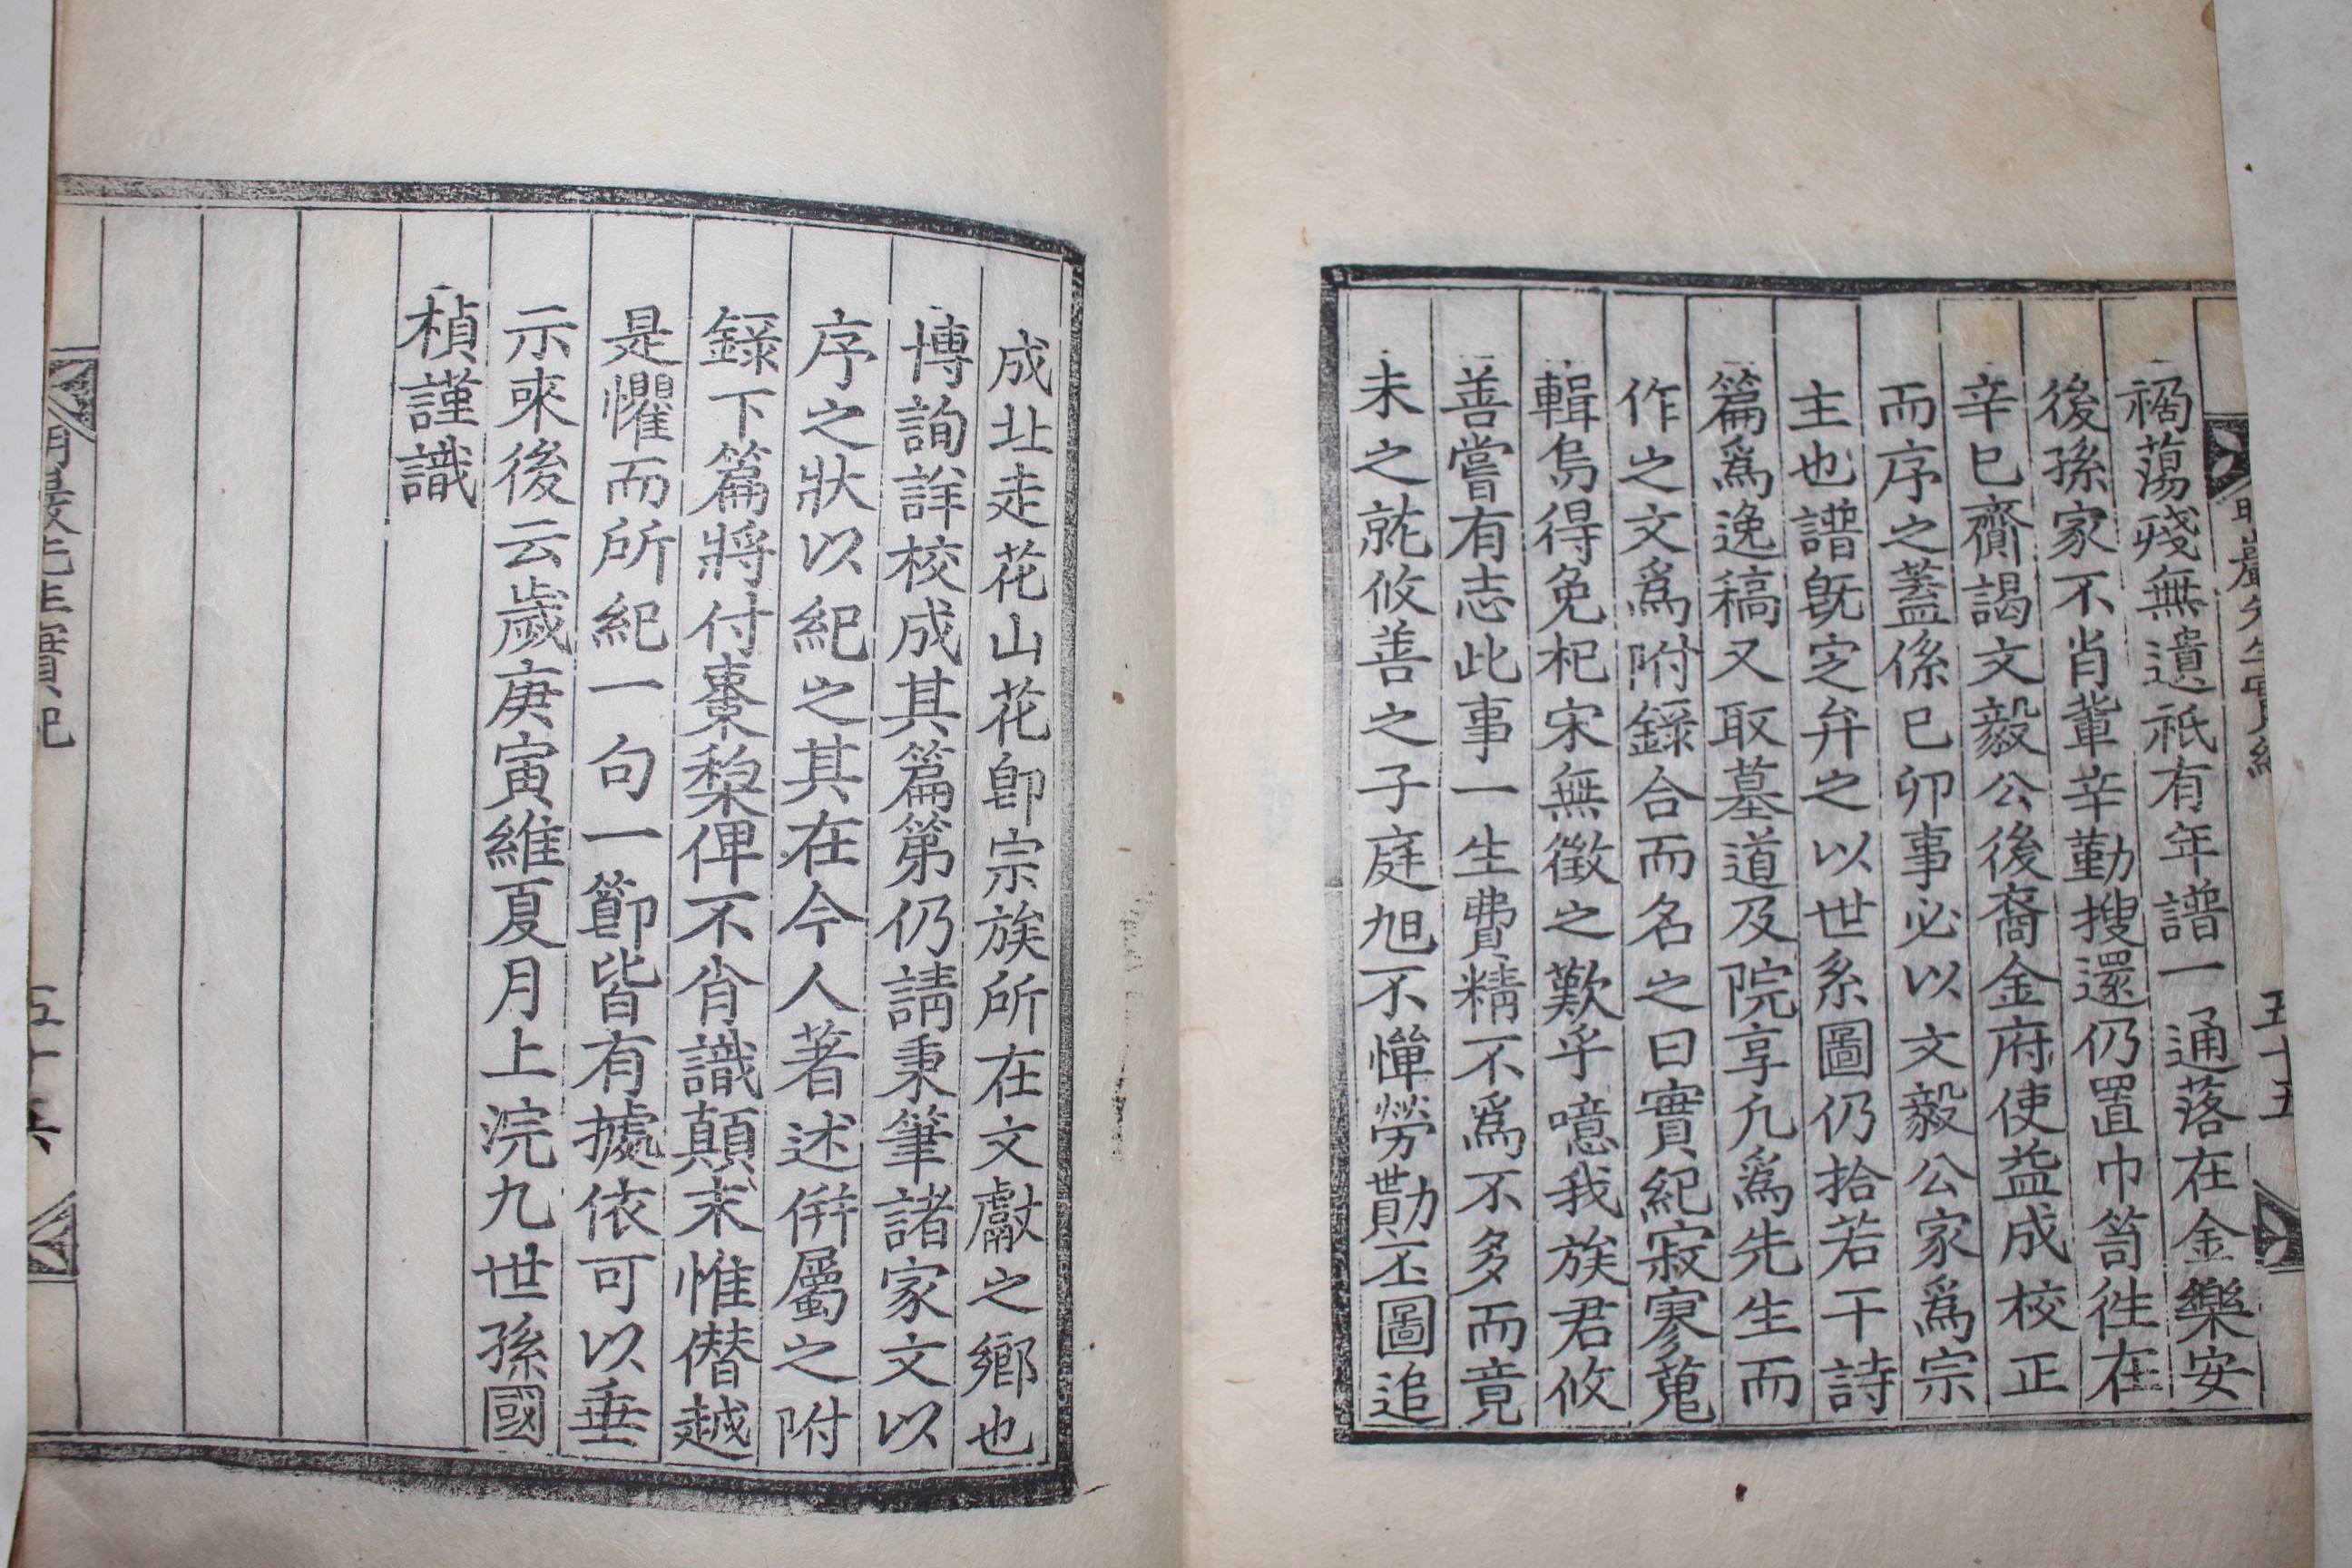 禍蕩殘無遺祇有年譜一通落在金樂安
後孫家不肖輩辛勤搜還仍置巾笥徃在
辛巳齋謁文毅公後裔金府使益成校正
而序之蓋係己卯事必以文毅公家爲宗
主也譜旣定弁之以世系圖仍拾若干詩
篇爲逸稿又取墓道及院享凢爲先生而
作之文爲附錄合而名之曰實紀寂寥蒐
輯烏得免杞宋無徵之歎乎噫我族君攸
善嘗有志此事一生費精不爲不多而竟
未之就攸善之子庭旭不憚勞勩丕圖追
五十五
成北走花山花卽宗族所在文獻之鄕也
博詢詳校成其篇第仍請秉筆諸家文以
序之狀以紀之其在今人著述倂屬之附
錄下篇將付棗棃俾不肖識顚末惟僭越
是懼而所紀一句一節皆有據依可以垂
示來後云歲庚寅維夏月上浣九世孫國
楨謹識
先生實紀
五十六